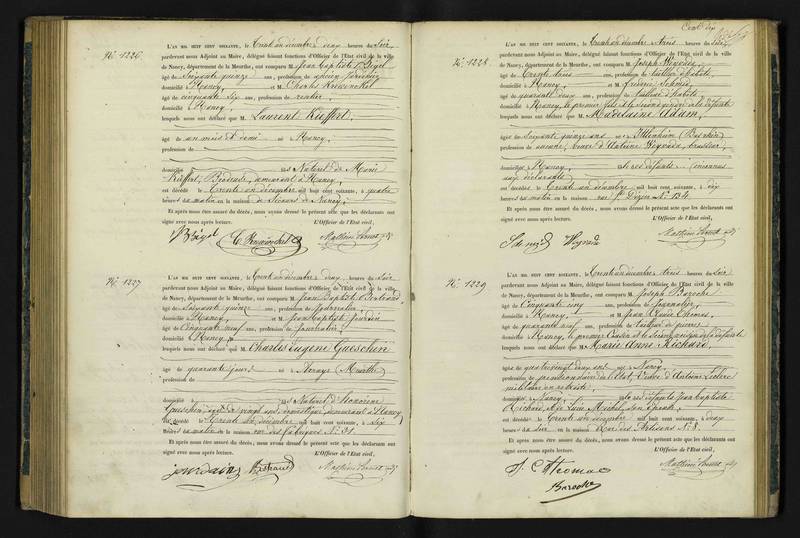 Nº 1226
L'AN MIL HUIT CENT SOIXANTE, le trente un décembre deux heures du soir
pardevant nous Adjoint au Maire, délégué faisant fonctions d'Officier de l'Etat civil de la ville
de Nancy, département de la Meurthe, ont comparu M. Jean Baptiste
âgé de soixante quinze ans, profession de ancien
domicilié à Nancy, et M. Charles
âgé de cinquante six ans, profession de rentier
domicilié à Nancy
lesquels nous ont déclaré que M. Laurent Kieffert,
âgé de un mois et demi né à Nancy,
profession de
domicilié à fils Naturel de Marie
Kieffert, demeurant à Nancy,
est décédé le trente un décembre mil huit cent soixante, à quatre
heures du matin en la maison de Secours de Nancy,
Et après nous être assuré du décès, nous avons dressé le présent acte que les déclarants ont
signé avec nous après lecture. L'Officier de l'Etat civil,
Nº 1227
L'AN MIL HUIT CENT SOIXANTE, le trente un décembre deux heures du soir
pardevant nous Adjoint au Maire, délégué faisant fonctions d'Officier de l'Etat civil de la ville
de Nancy, département de la Meurthe, ont comparu M. Jean Baptiste Bertrand
âgé de soixante quinze ans, profession de Journalier,
domicilié à Nancy, et M. Jean Baptiste Jourdain
âgé de cinquante neuf ans, profession de Journalier,
domicilié à Nancy,
lesquels nous ont déclaré que M. Charles Eugène Gueschin
âgé de quarante jours, né à (Meurthe)
profession de
domicilié à fils Naturel d'Honorine
Gueschin, âgée de vingt ans, domestique demeurant à Nancy
est décédé le trente un décembre mil huit cent soixante, à six
heures du matin en la maison rue des Fabriques Nº 31.
Et après nous être assuré du décès, nous avons dressé le présent acte que les déclarants ont
signé avec nous après lecture. L'Officier de l'Etat civil,
Jourdain Bertrand
Cent dix
Nº 1228
L'AN MIL HUIT CENT SOIXANTE, le trente un décembre trois heures du soir
pardevant nous Adjoint au Maire, délégué faisant fonctions d'Officier de l'Etat civil de la ville
de Nancy, département de la Meurthe, ont comparu M. Joseph Weynde
âgé de trente trois ans, profession de tailleur d'habits,
domicilié à Nancy, et M. Frédéric Schmid
âgé de quarante deux ans, profession de tailleur d'habits
domicilié à Nancy, le premier fils et le second gendre de la défunte
lesquels nous ont déclaré que M. Madelaine Adam,
âgée de soixante quinze ans née à (Bas Rhin)
profession de veuve d'Antoine Weynde, brasseur,
domiciliée à Nancy, inconnus
aux déclarants
est décédée le trente un décembre mil huit cent soixante, à dix
heures du matin en la maison rue St Dizier Nº 134.
Et après nous être assuré du décès, nous avons dressé le présent acte que les déclarants ont
signé avec nous après lecture. L'Officier de l'Etat civil,
Nº 1229
L'AN MIL HUIT CENT SOIXANTE, le trente un décembre trois heures du soir
pardevant nous Adjoint au Maire, délégué faisant fonctions d'Officier de l'Etat civil de la ville
de Nancy, département de la Meurthe, ont comparu M. Joseph Baroche
âgé de cinquante cinq ans, profession de Journalier,
domicilié à Nancy, et M. Jean Claude Thomas,
âgé de quarante neuf ans, profession de tailleur de pierres
domicilié à Nancy, le premier cousin et le second voisin de la défunte
lesquels nous ont déclaré que M. Marie Anne Richard,
âgée de quatre vingt deux ans née à Nancy,
profession de pensionnaire de l'Etat, Veuve d'Antoine Leclerc
militaire en retraite,
domiciliée à Nancy, Jean Baptiste
Richard et de
est décédée le trente un décembre mil huit cent soixante, à deux
heures du soir en la maison Rue des Artisans Nº 8.
Et après nous être assuré du décès, nous avons dressé le présent acte que les déclarants ont
signé avec nous après lecture. L'Officier de l'Etat civil,
J. C. Thomas
Baroche